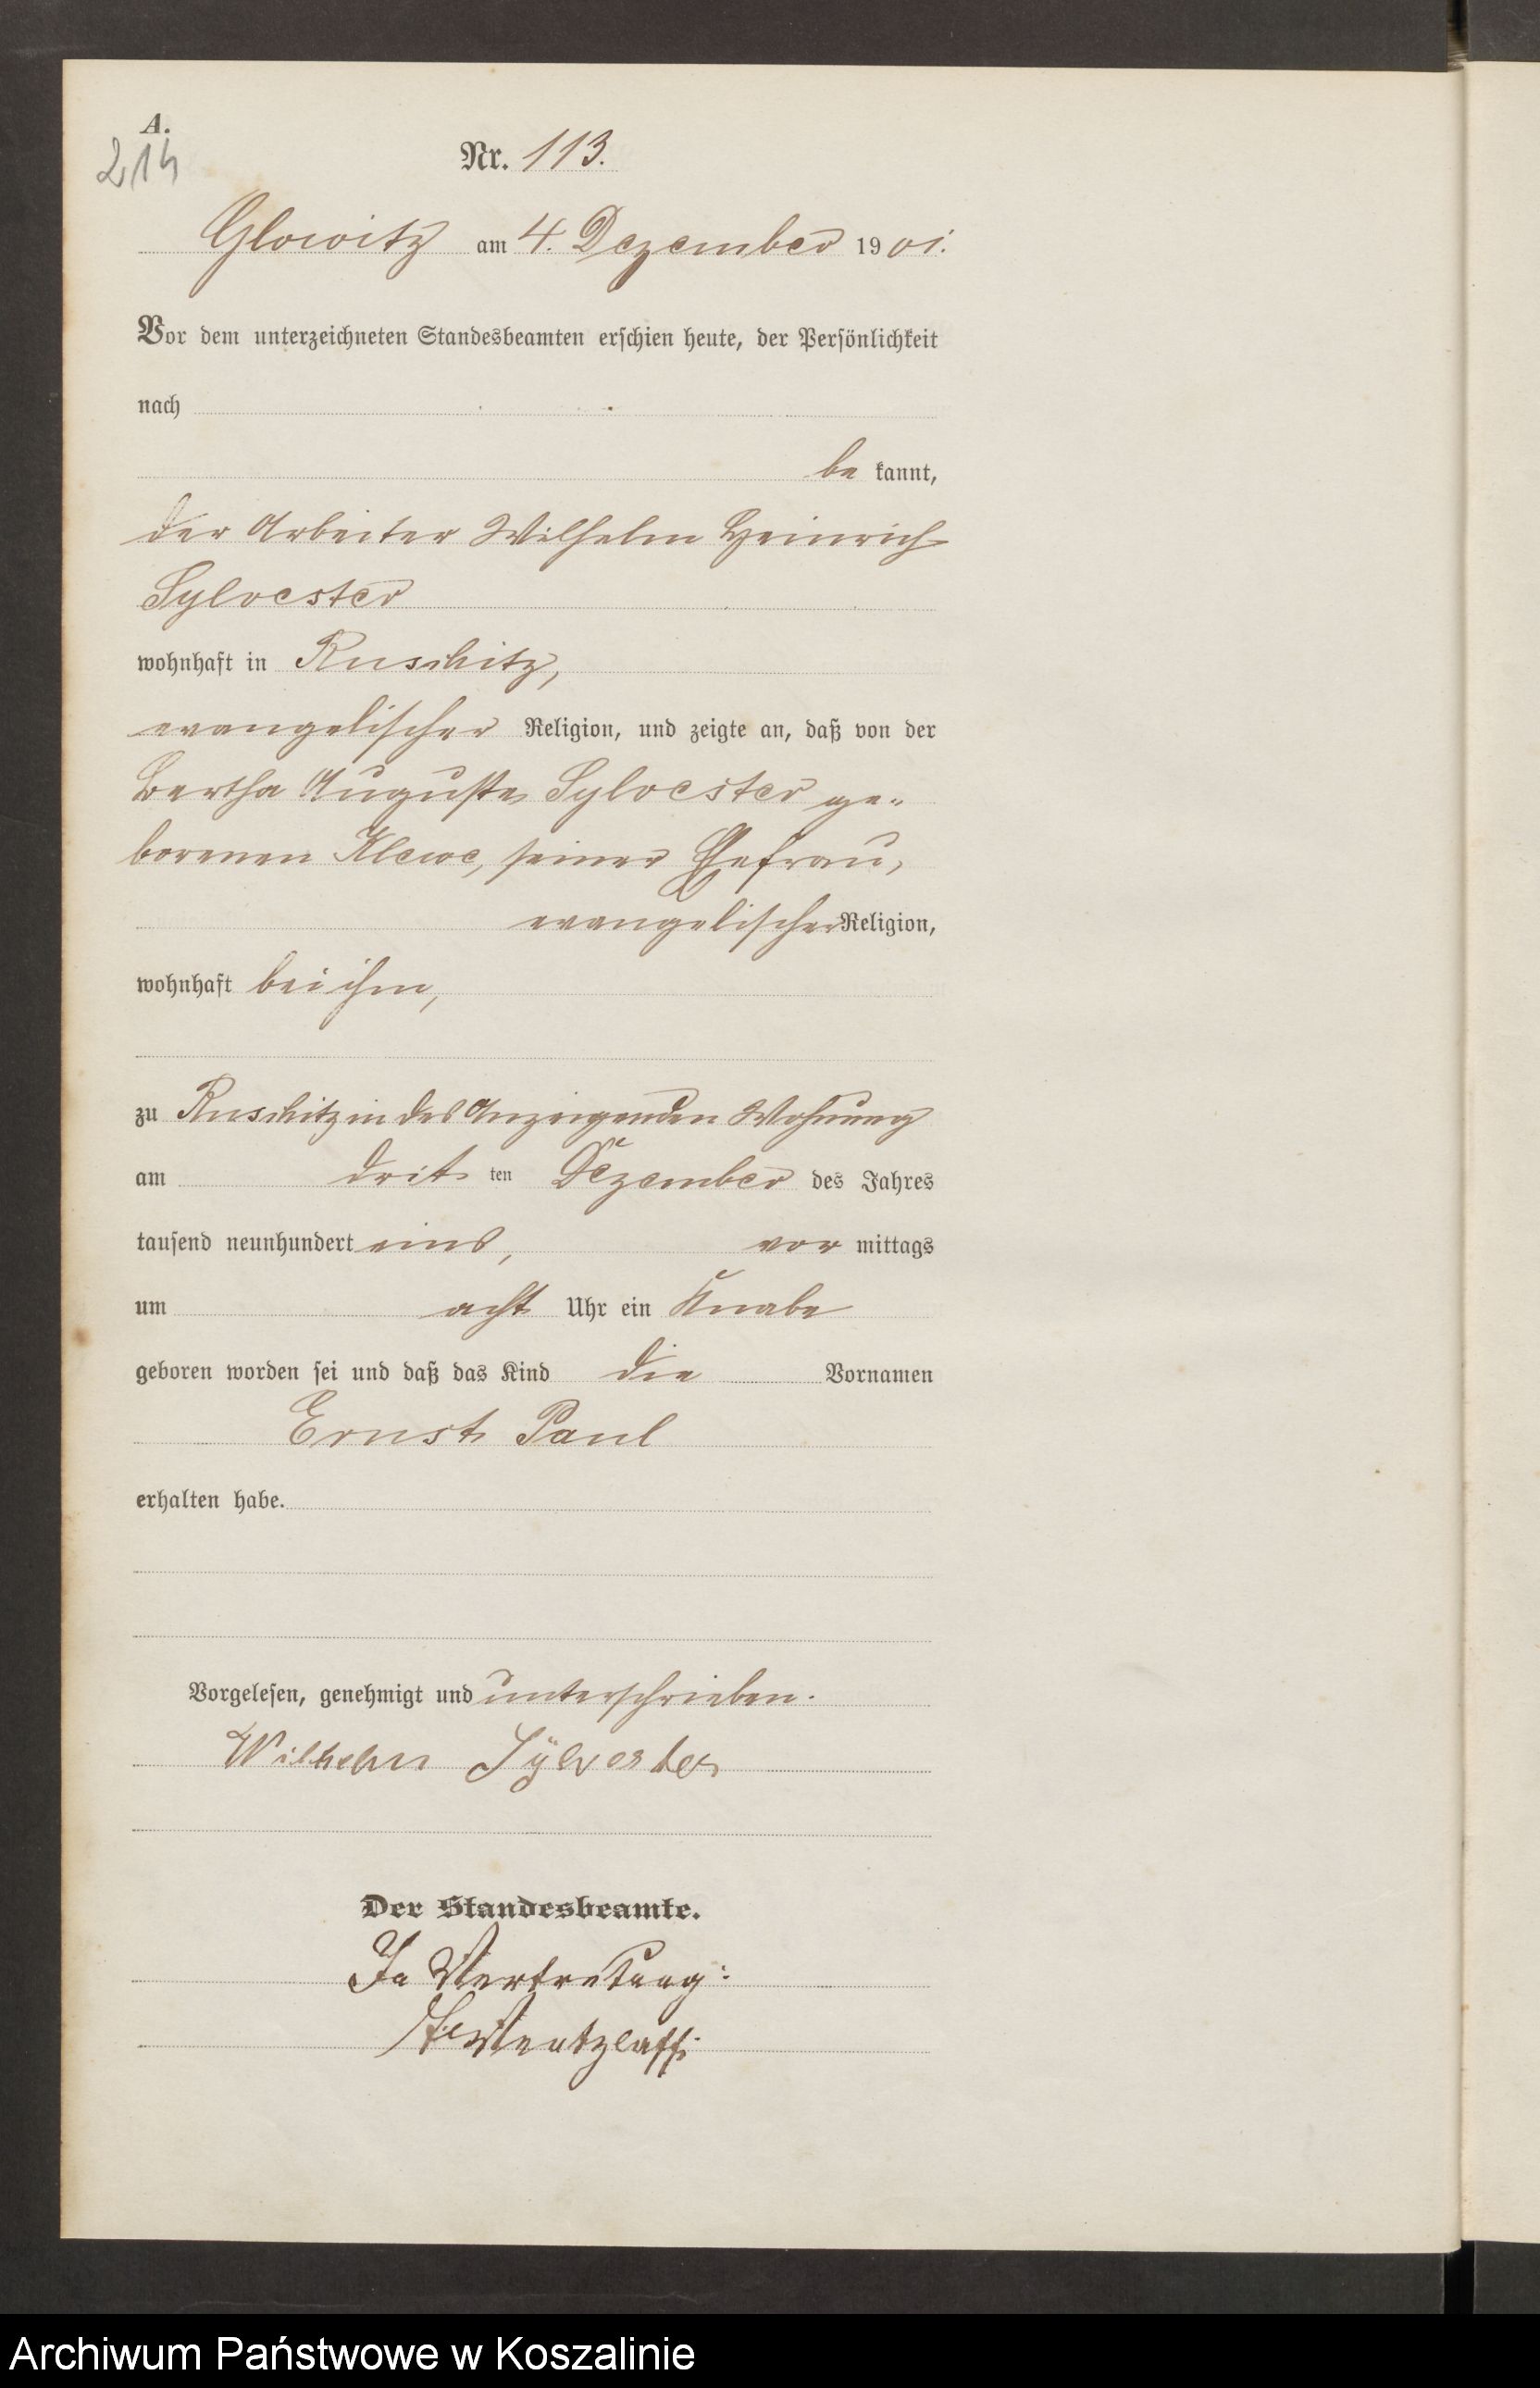 A.
214
Nr. 113.
Glowitz am 4. Dezember 1901.
Vor dem unterzeichneten Standesbeamten erschien heute, der Persönlichkeit
nach
be kannt,
der Arbeiter Wilhelm Heinrich
Sylvester
wohnhaft in Ruschitz,
evangelischer Religion, und zeigte an, daß von der
Bertha Auguste Sylvester ge-
borenen Klewe, seiner Ehefrau,
evangelischer Religion,
wohnhaft bei ihm,
zu Ruschitz in des Anzeigenden Wohnung
am dritten Dezember des Jahres
tausend neunhundert eins, vor mittags
um acht Uhr ein Knabe
geboren worden sei und daß das Kind die Vornamen
Ernst Paul
erhalten habe.
Vorgelesen, genehmigt und unterschrieben.
Wilhelm Sÿlvester
Der Standesbeamte.
In Vertretung:
Wentzlaff.
Archiwum Państwowe w Koszalinie